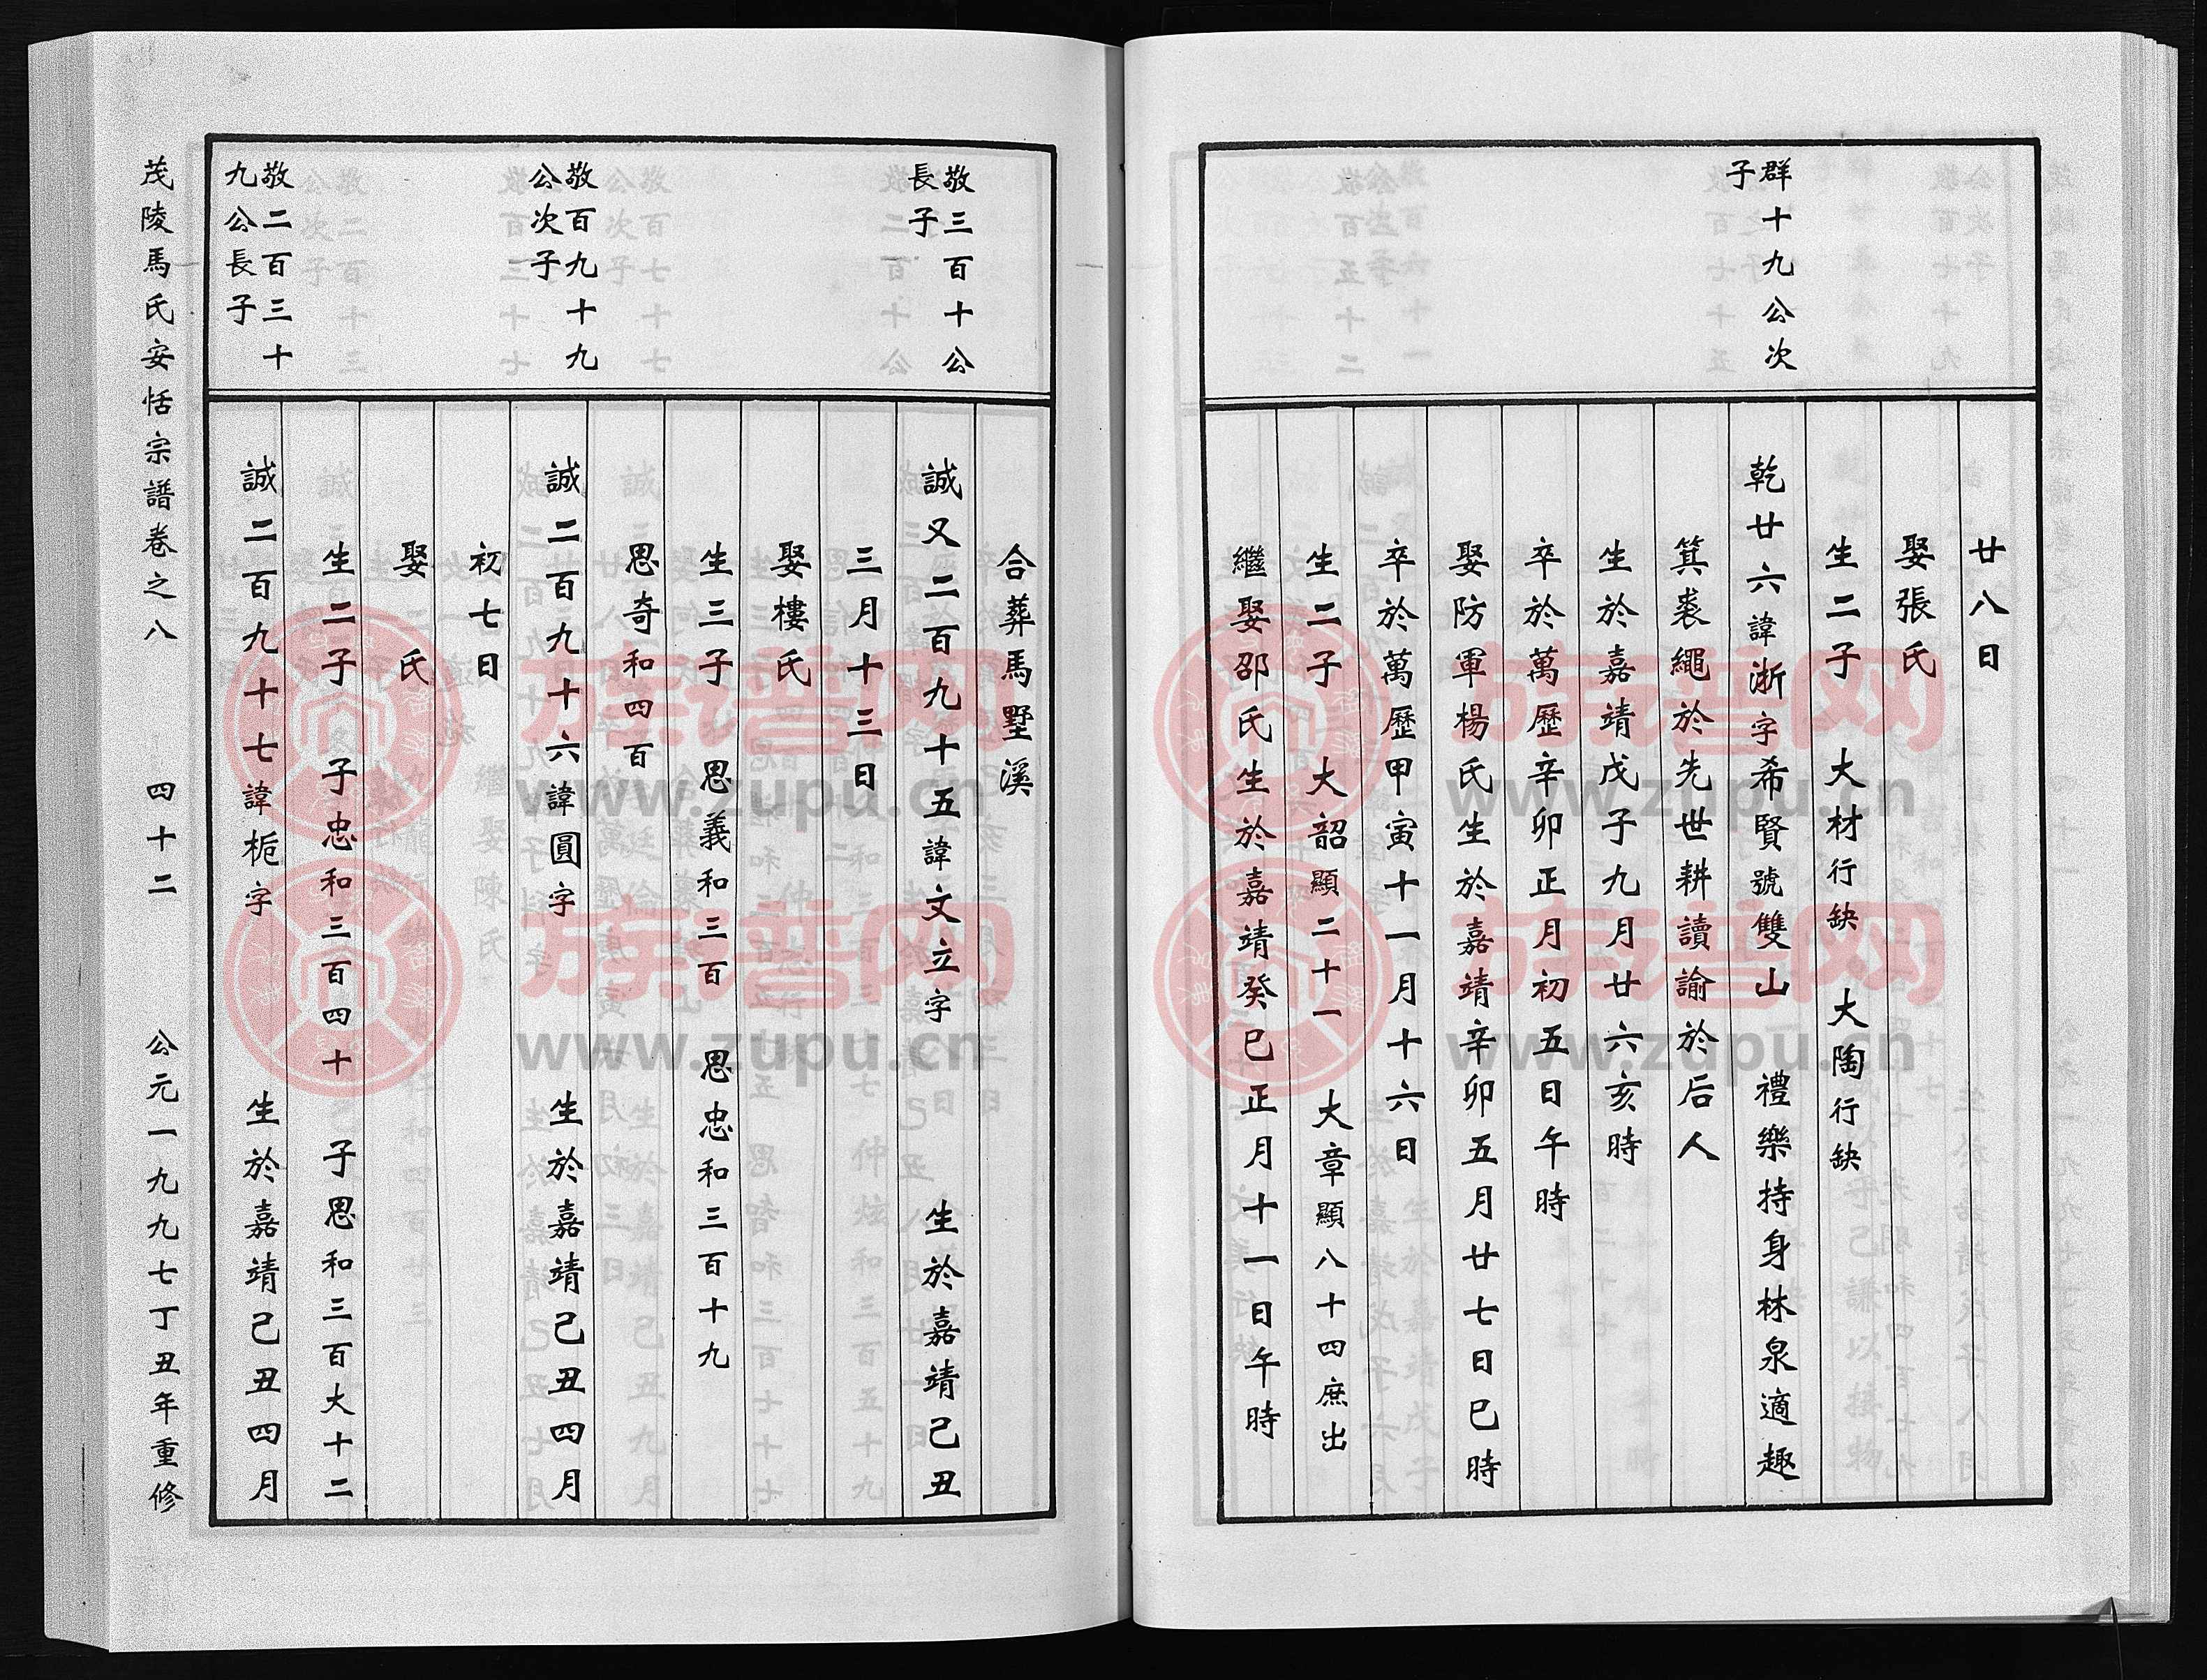 群十九公次
子
廿八日
娶張氏
生二子　大材行缺　大陶行缺
乾廿六諱浙字希賢號雙山　禮樂持身林泉適趣
箕裘繩於先世耕讀諭於后人
生於嘉靖戊子九月廿六亥時
卒於萬歷辛卯正月初五日午時
娶防軍楊氏生於嘉靖辛卯五月廿七日巳時
卒於萬歷甲寅十一月十六日
生二子　大韶顯二十一　大章顯八十四庶出
繼娶邵氏生於嘉靖癸巳正月十一日午時
敬三百十公
長子
敬百九十九
公次子
敬二百三十
九公長子
合葬馬墅溪
誠又二百九十五諱文立字　生於嘉靖己丑
三月十三日
娶樓氏
生三子　思義和三百　思忠和三百十九
思奇和四百
誠二百九十六諱圓字　生於嘉靖己丑四月
初七日
娶　氏
生二子　子忠和三百四十　子思和三百大十二
誠二百九十七諱梔字　生於嘉靖己丑四月
茂陵馬氏安恬宗譜卷之八　四十二　公元一九九七丁丑年重修
族譜网
www.zupu.cn
族譜网
www.zupu.cn
族譜网
www.zupu.cn
族譜网
www.zupu.cn